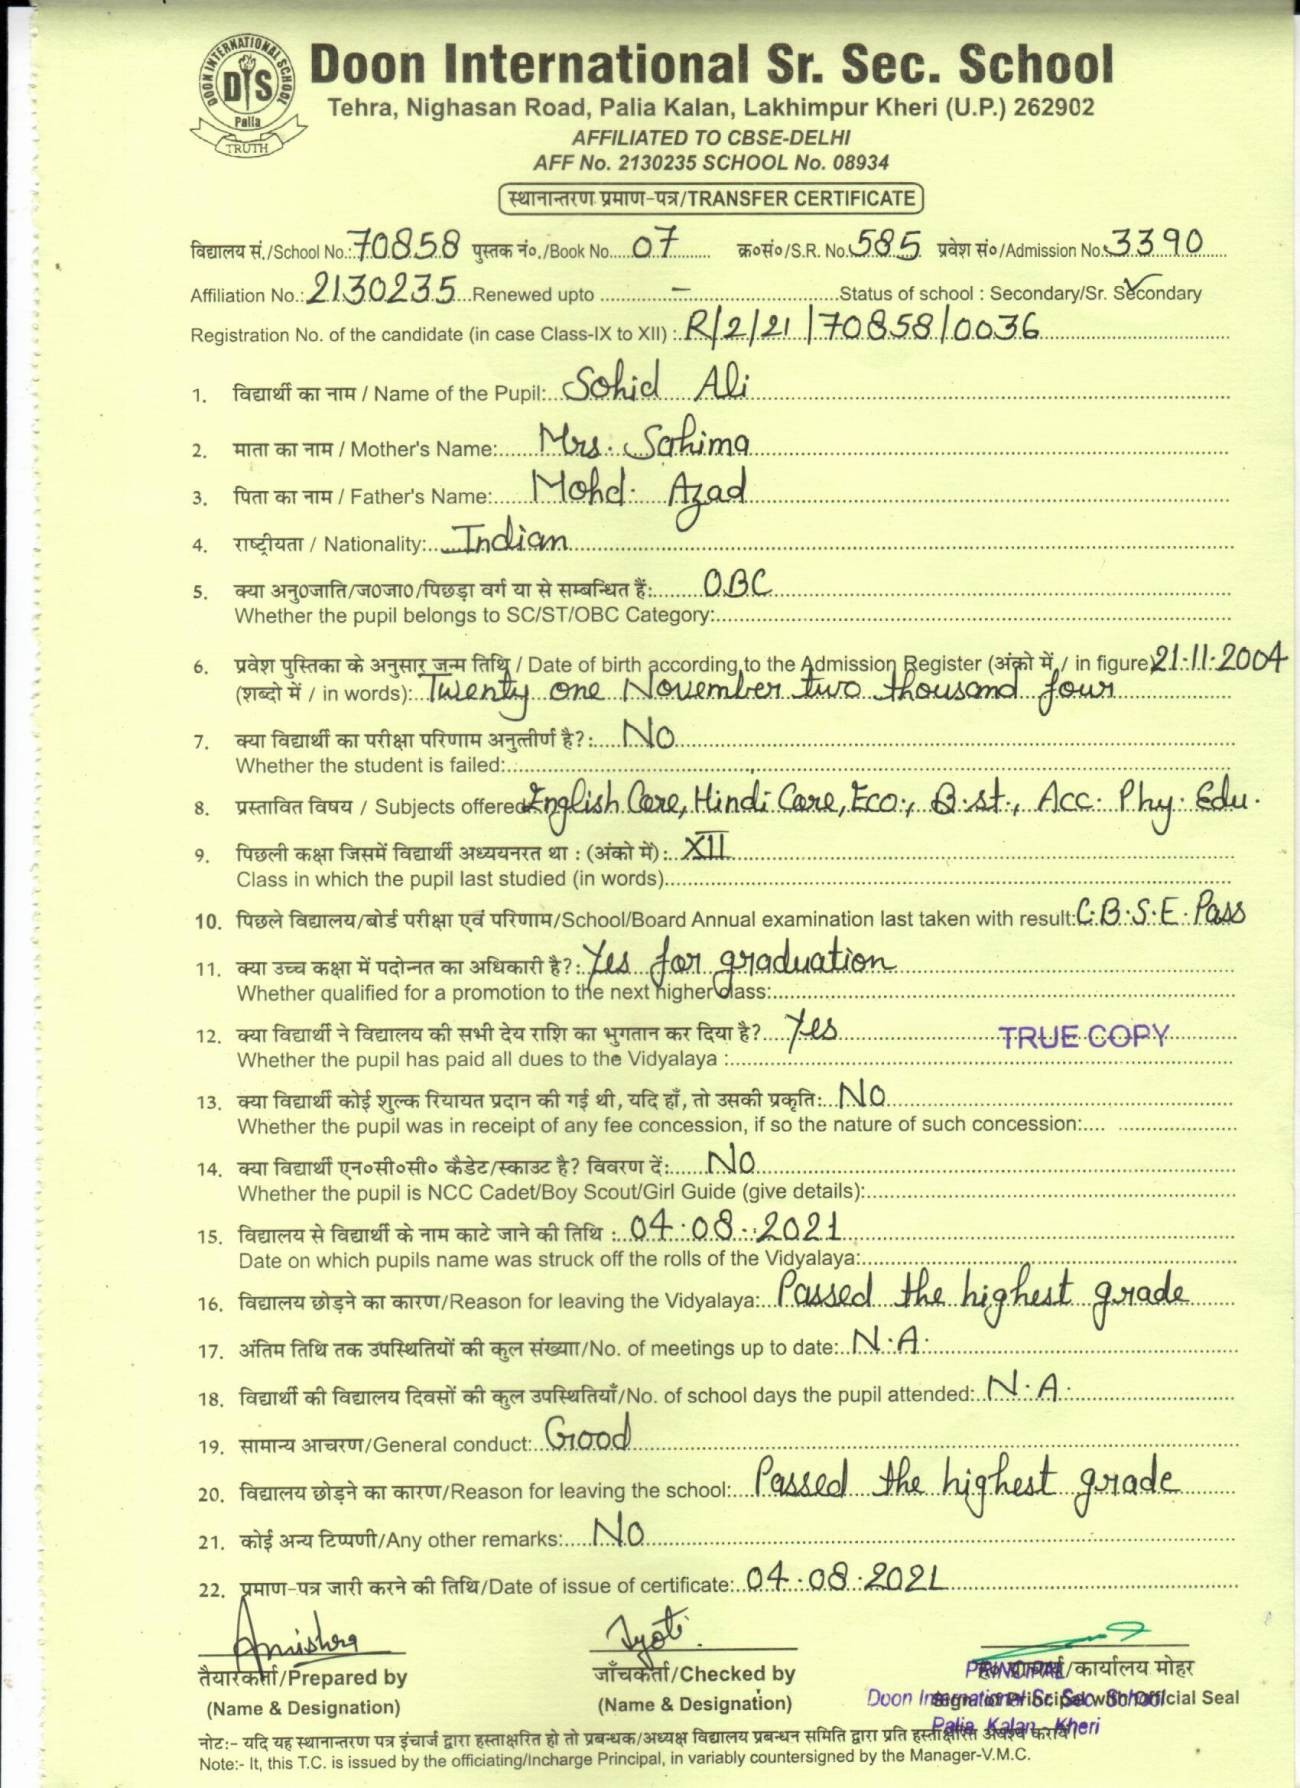 DOON INTERNATIONAL SCHOOL
DIS
Palia
TRUTH
Doon International Sr. Sec. School
Tehra, Nighasan Road, Palia Kalan, Lakhimpur Kheri (U.P.) 262902
AFFILIATED TO CBSE-DELHI
AFF No. 2130235 SCHOOL No. 08934
स्थानान्तरण प्रमाण-पत्र/TRANSFER CERTIFICATE
विद्यालय सं./School No.: 70858 पुस्तक नं०./Book No. 07 क्र०सं०/S.R. No. 585 प्रवेश सं०/Admission No. 3390
Affiliation No.: 2130235 Renewed upto - Status of school : Secondary/Sr. Secondary
Registration No. of the candidate (in case Class-IX to XII) : R/2/21/70858/0036
1. विद्यार्थी का नाम / Name of the Pupil: Sohid Ali
2. माता का नाम / Mother's Name: Mrs. Sahima
3. पिता का नाम / Father's Name: Mohd. Azad
4. राष्ट्रीयता / Nationality: Indian
5. क्या अनु०जाति/ज०जा०/पिछड़ा वर्ग या से सम्बन्धित हैं: OBC
Whether the pupil belongs to SC/ST/OBC Category:
6. प्रवेश पुस्तिका के अनुसार जन्म तिथि / Date of birth according to the Admission Register (अंको में / in figure) 21-11-2004
(शब्दो में / in words): Twenty one November two thousand four
7. क्या विद्यार्थी का परीक्षा परिणाम अनुत्तीर्ण है?: No
Whether the student is failed:
8. प्रस्तावित विषय / Subjects offered English Core, Hindi Core, Eco., B.st., Acc. Phy. Edu.
9. पिछली कक्षा जिसमें विद्यार्थी अध्ययनरत था : (अंको में): XII
Class in which the pupil last studied (in words)
10. पिछले विद्यालय/बोर्ड परीक्षा एवं परिणाम/School/Board Annual examination last taken with result: C.B.S.E. Pass
11. क्या उच्च कक्षा में पदोन्नत का अधिकारी है?: Yes for graduation
Whether qualified for a promotion to the next higher class:
12. क्या विद्यार्थी ने विद्यालय की सभी देय राशि का भुगतान कर दिया है? Yes TRUE COPY
Whether the pupil has paid all dues to the Vidyalaya :
13. क्या विद्यार्थी कोई शुल्क रियायत प्रदान की गई थी, यदि हाँ, तो उसकी प्रकृति: No
Whether the pupil was in receipt of any fee concession, if so the nature of such concession:
14. क्या विद्यार्थी एन०सी०सी० कैडेट/स्काउट है? विवरण दें: No
Whether the pupil is NCC Cadet/Boy Scout/Girl Guide (give details):
15. विद्यालय से विद्यार्थी के नाम काटे जाने की तिथि : 04-08-2021
Date on which pupils name was struck off the rolls of the Vidyalaya:
16. विद्यालय छोड़ने का कारण/Reason for leaving the Vidyalaya: Passed the highest grade
17. अंतिम तिथि तक उपस्थितियों की कुल संख्या/No. of meetings up to date: N.A.
18. विद्यार्थी की विद्यालय दिवसों की कुल उपस्थितियाँ/No. of school days the pupil attended: N.A.
19. सामान्य आचरण/General conduct: Good
20. विद्यालय छोड़ने का कारण/Reason for leaving the school: Passed the highest grade
21. कोई अन्य टिप्पणी/Any other remarks: No
22. प्रमाण-पत्र जारी करने की तिथि/Date of issue of certificate: 04-08-2021
Amishra Jyoti
तैयारकर्ता/Prepared by जाँचकर्ता/Checked by PRINCIPAL /कार्यालय मोहर
(Name & Designation) (Name & Designation) Doon International Sr. Sec. School Sign. of Principal with Official Seal
Palia Kalan, Kheri
नोट:- यदि यह स्थानान्तरण पत्र इंचार्ज द्वारा हस्ताक्षरित हो तो प्रबन्धक/अध्यक्ष विद्यालय प्रबन्धन समिति द्वारा प्रति हस्ताक्षरित अवश्य करायें।
Note:- It, this T.C. is issued by the officiating/Incharge Principal, in variably countersigned by the Manager-V.M.C.